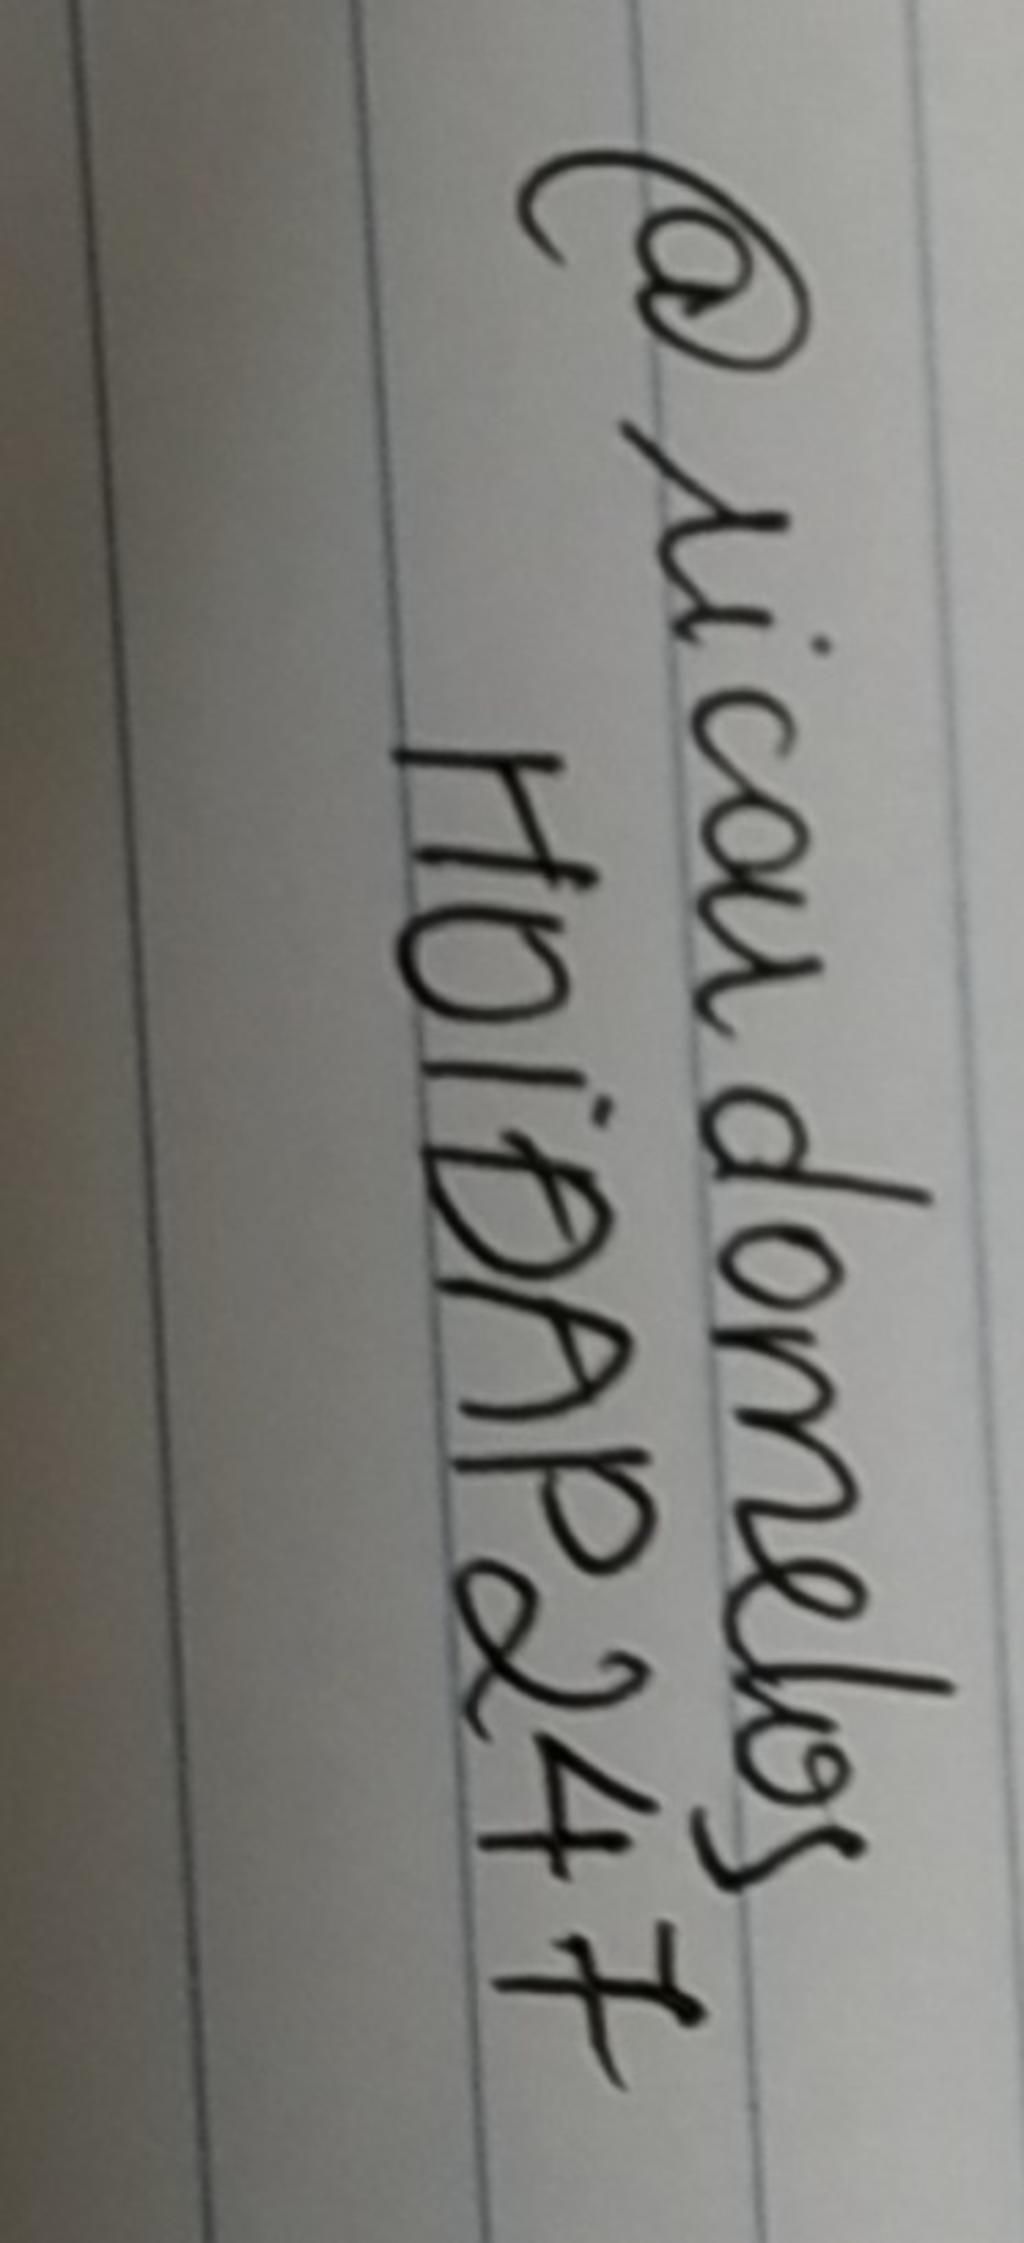 @ricardomelos
HDiDAP247